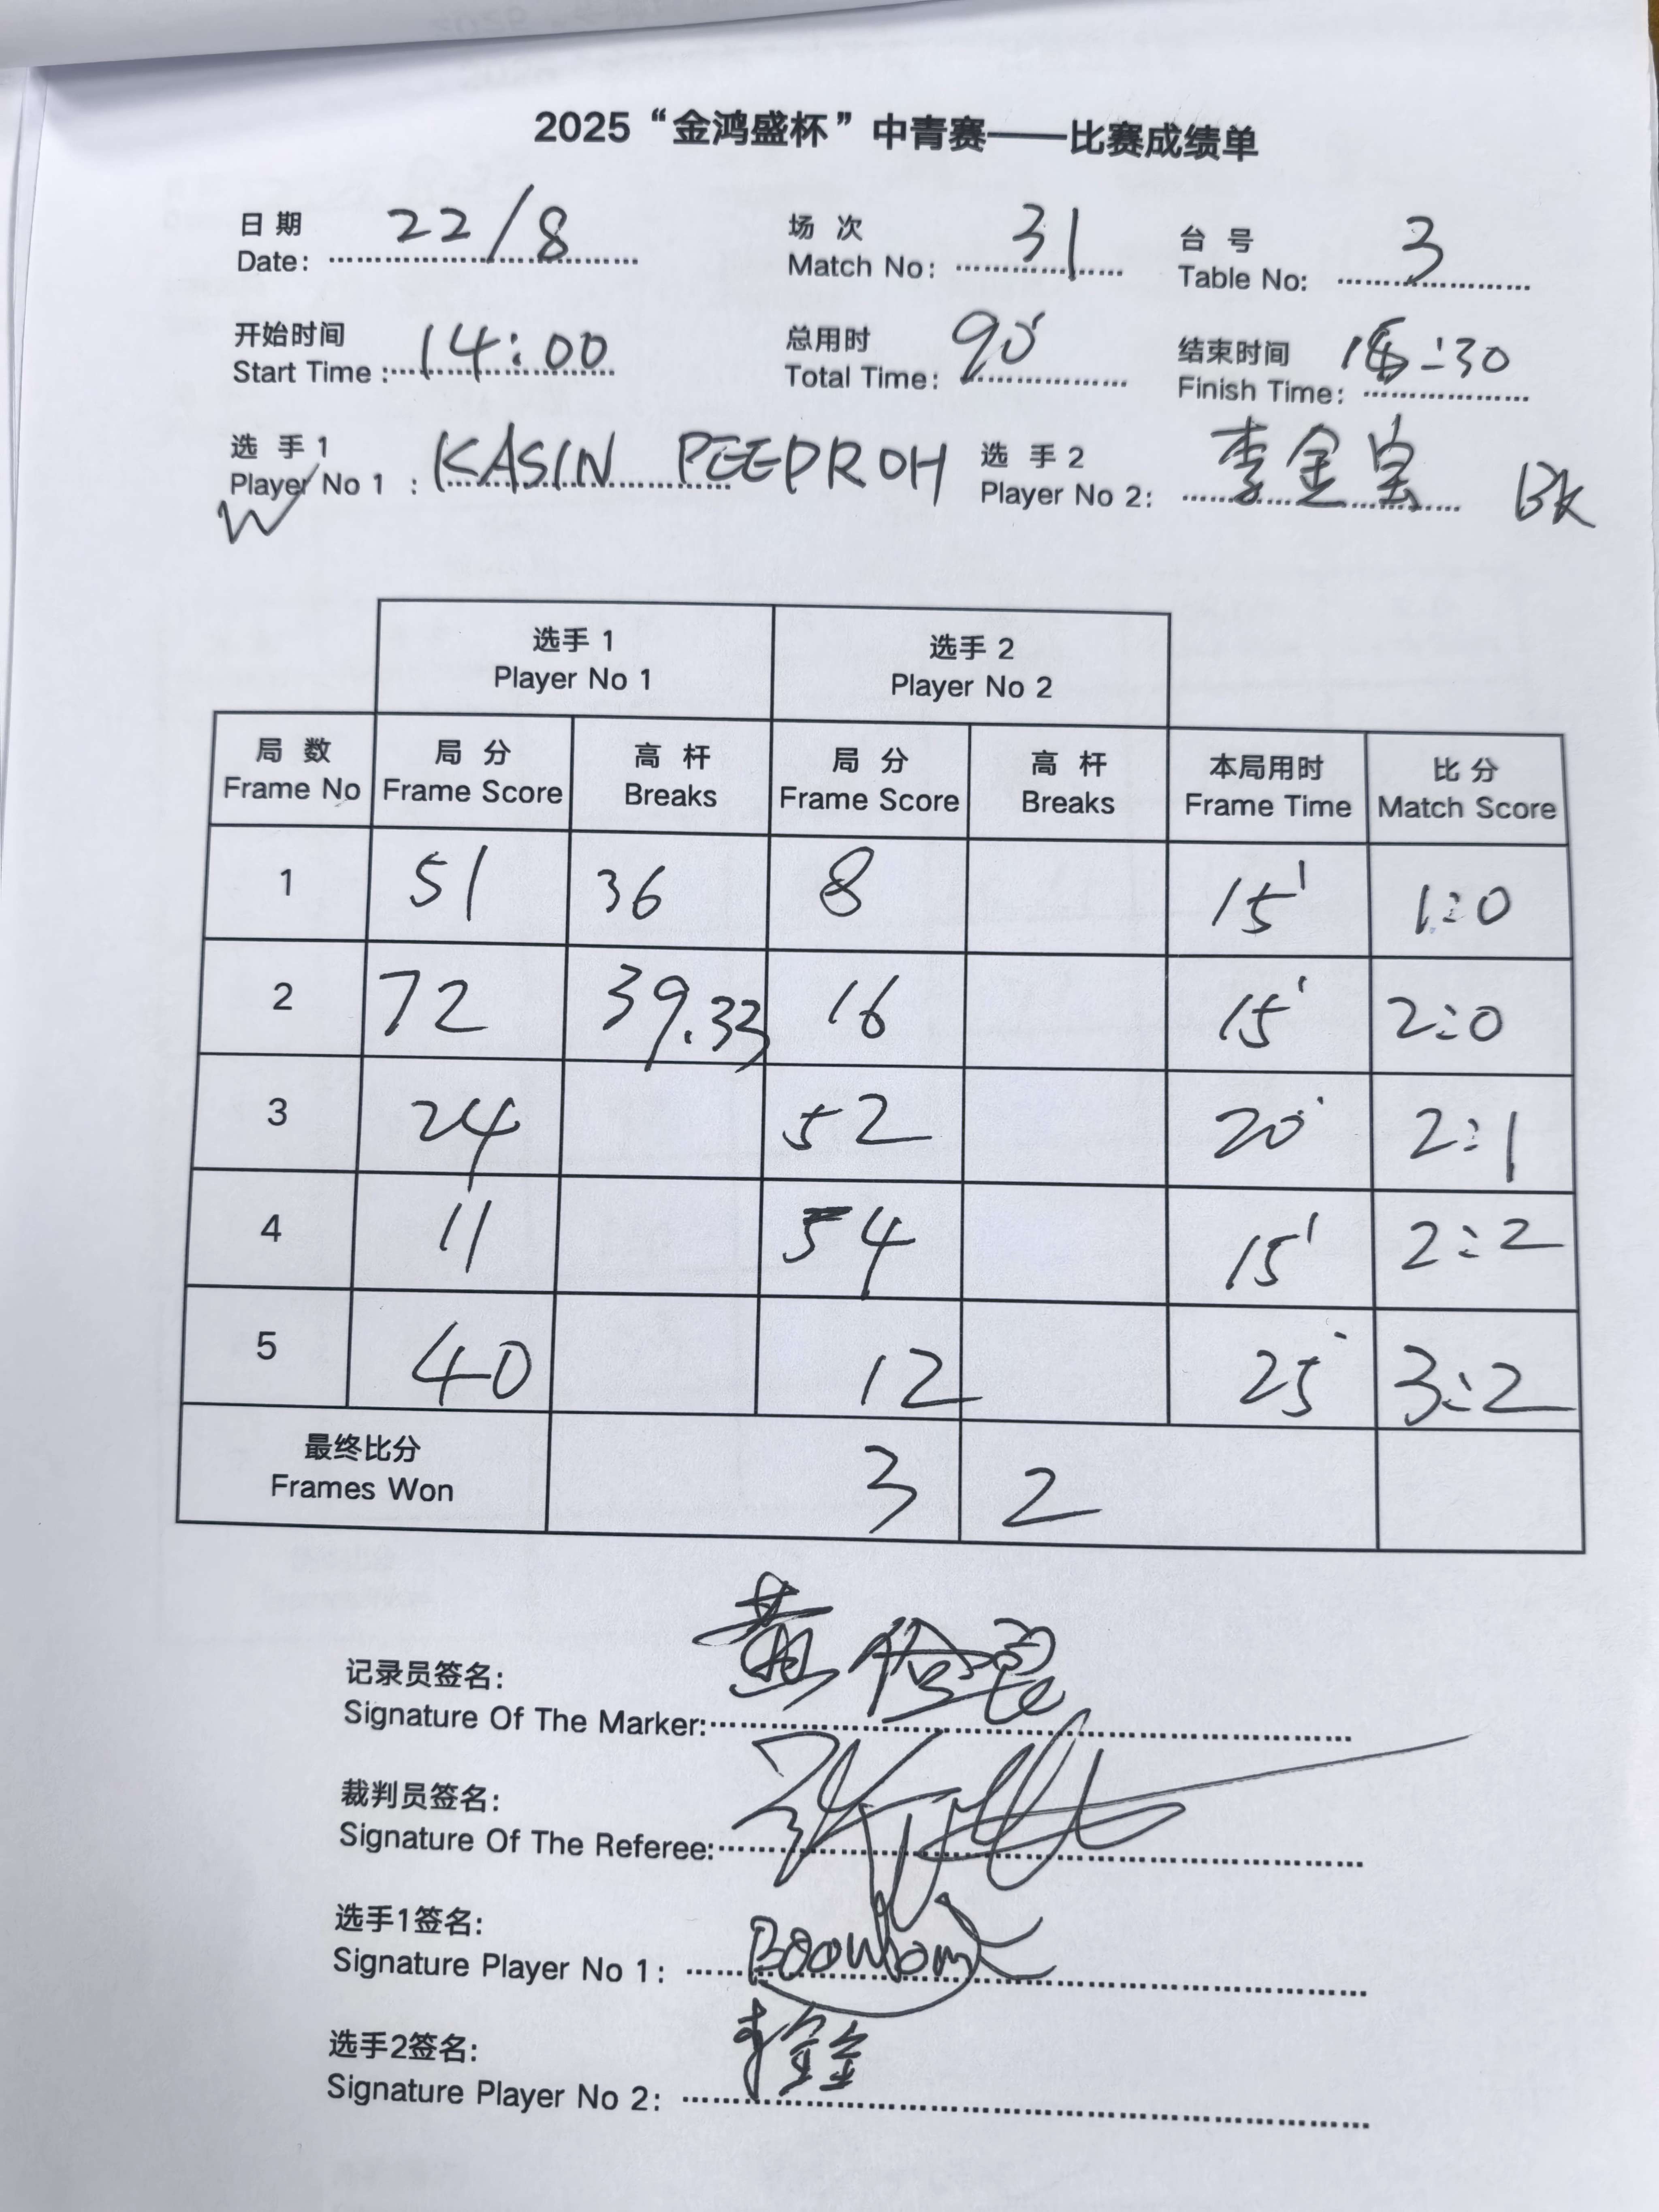 2025“金鸿盛杯”中青赛——比赛成绩单
日 期 22/8 场 次 31 台 号 3
Date: Match No: Table No:
开始时间 14:00 总用时 90' 结束时间 :30
Start Time : Total Time: Finish Time:
选 手 1 KASIN PEEPROH 选 手 2 李金宝
Player No 1 : Player No 2: BK
W
选手 1 选手 2
Player No 1 Player No 2
局 数 局 分 高 杆 局 分 高 杆 本局用时 比 分
Frame No Frame Score Breaks Frame Score Breaks Frame Time Match Score
1 51 36 8 15' 1:0
2 72 39.33 16 15' 2:0
3 24 52 20' 2:1
4 11 54 15' 2:2
5 40 12 25' 3:2
最终比分 3 2
Frames Won
记录员签名:
Signature Of The Marker:
裁判员签名:
Signature Of The Referee:
选手1签名:
Signature Player No 1:
选手2签名:
Signature Player No 2: